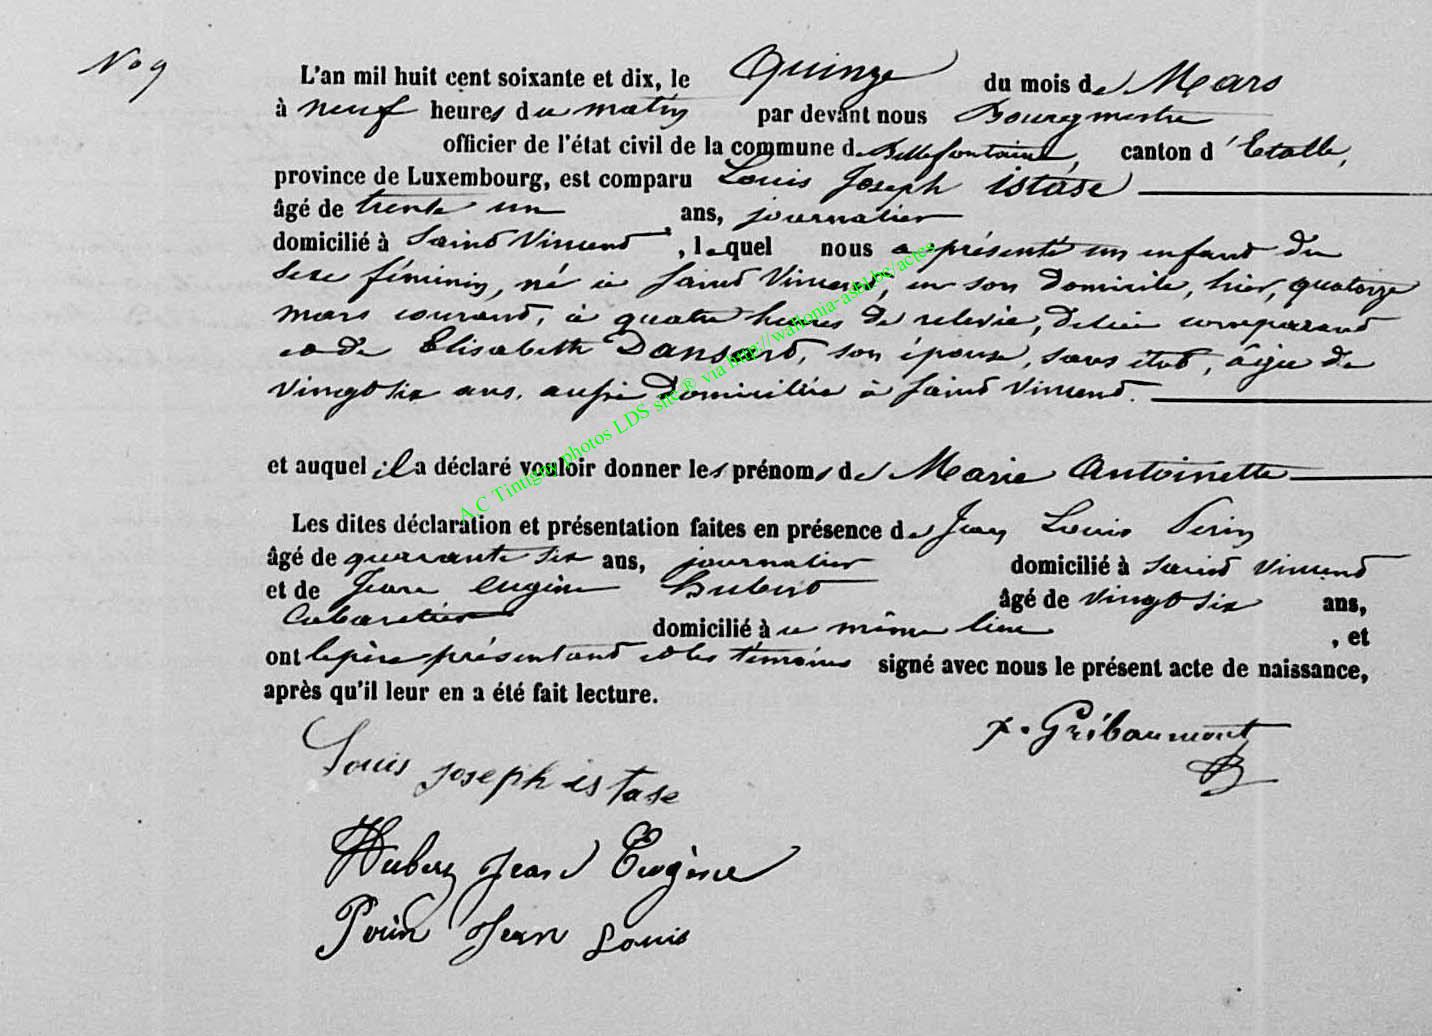 No 9
L'an mil huit cent soixante et dix, le Quinze du mois de Mars
à neuf heures du matin par devant nous Bourgmestre
officier de l'état civil de la commune de Bellefontaine, canton d'Etalle,
province de Luxembourg, est comparu Louis Joseph istase
âgé de trente un ans, journalier
domicilié à Saint Vincent, lequel nous a présenté un enfant du
sexe féminin, né à Saint Vincent, en son domicile, hier, quatorze
mars courant, à quatre heures de relevée, de lui comparant
et de Elisabeth Dansard, son épouse, sans état, âgée de
vingt six ans, aussi domiciliée à Saint Vincent.
et auquel il a déclaré vouloir donner les prénoms de Marie Antoinette
Les dites déclaration et présentation faites en présence de Jean Louis Perin
âgé de quarante six ans, journalier domicilié à Saint Vincent
et de Jean Eugène Hubert âgé de vingt six ans,
Cabaretier domicilié à ce même lieu, et
ont le père présentant et les témoins signé avec nous le présent acte de naissance,
après qu'il leur en a été fait lecture.
Gribaumont
Louis joseph istase
Hubert Jean Eugène
Perin Jean Louis
A.C Tintigny photos LDS site® via http://wallonia-asbl.be/actes